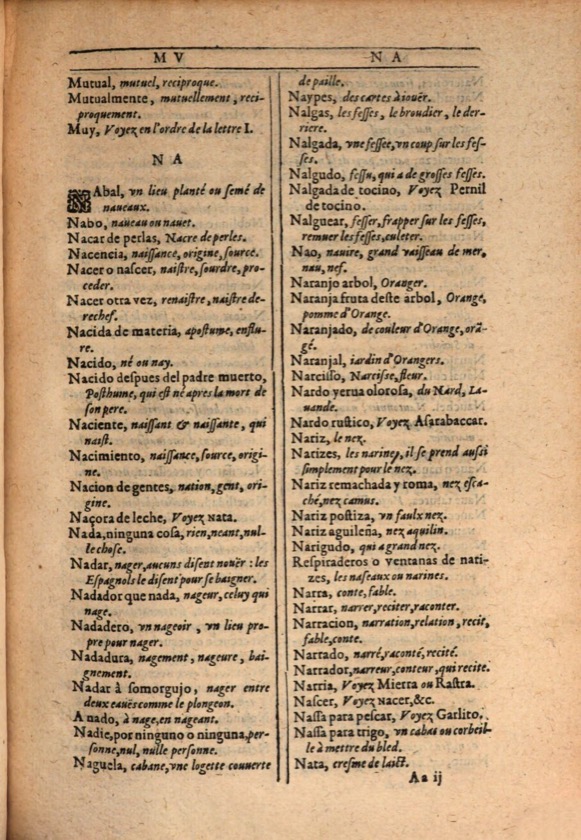 M V
Mutual, mutuel, reciproque.
Mutualmente, mutuellement, reci-
proquement.
Muy, Voyez en l'ordre de la lettre I.
N A
NAbal, vn lieu planté ou semé de
naueaux.
Nabo, naueau ou nauet.
Nacar de perlas, Nacre de perles.
Nacencia, naissance, origine, source.
Nacer o nascer, naistre, sourdre, pro-
ceder.
Nacer otra vez, renaistre, naistre de-
rechef.
Nacida de materia, apostume, enflu-
re.
Nacido, né ou nay.
Nacido despues del padre muerto,
Posthume, qui est né apres la mort de
son pere.
Naciente, naissant & naissante, qui
naist.
Nacimiento, naissance, source, origi-
ne.
Nacion de gentes, nation, gent, ori-
gine.
Naçora de leche, Voyez Nata.
Nada, ninguna cosa, rien, neant, nul-
le chose.
Nadar, nager, aucuns disent nouër: les
Espagnols le disent pour se baigner.
Nadador que nada, nageur, celuy qui
nage.
Nadadero, vn nageoir, vn lieu pro-
pre pour nager.
Nadadura, nagement, nageure, bai-
gnement.
Nadar à somorgujo, nager entre
deux eauës comme le plongeon.
A nado, à nage, en nageant.
Nadie, por ninguno o ninguna, per-
sonne, nul, nulle personne.
Naguela, cabane, vne logette couuerte
N A
de paille.
Naypes, des cartes à iouër.
Nalgas, les fesses, le broudier, le der-
riere.
Nalgada, vne fessée, vn coup sur les fes-
ses.
Nalgudo, fessu, qui a de grosses fesses.
Nalgada de tocino, Voyez Pernil
de tocino.
Nalguear, fesser, frapper sur les fesses,
remuer les fesses, culeter.
Nao, nauire, grand vaisseau de mer,
nau, nef.
Naranjo arbol, Oranger.
Naranja fruta deste arbol, Orange,
pomme d'Orange.
Naranjado, de couleur d'Orange, orã-
gé.
Naranjal, iardin d'Orangers.
Narcisso, Narcisse, fleur.
Nardo yerua olorosa, du Nard, La-
uande.
Nardo rustico, Voyez Asarabaccar.
Nariz, le nez.
Narizes, les narines, il se prend aussi
simplement pour le nez.
Nariz remachada y roma, nez esca-
ché, nez camus.
Nariz postiza, vn faulx nez.
Nariz aguileña, nez aquilin.
Narigudo, qui a grand nez.
Respiraderos o ventanas de nari-
zes, les naseaux ou narines.
Narra, conte, fable.
Narrar, narrer, reciter, raconter.
Narracion, narration, relation, recit,
fable, conte.
Narrado, narré, raconté, recité.
Narrador, narreur, conteur, qui recite.
Narria, Voyez Mierra ou Rastra.
Nascer, Voyez nacer, &c.
Nassa para pescar, Voyez Garlito.
Nassa para trigo, vn cabas ou corbeil-
le à mettre du bled.
Nata, cresme de laict.
Aa ij